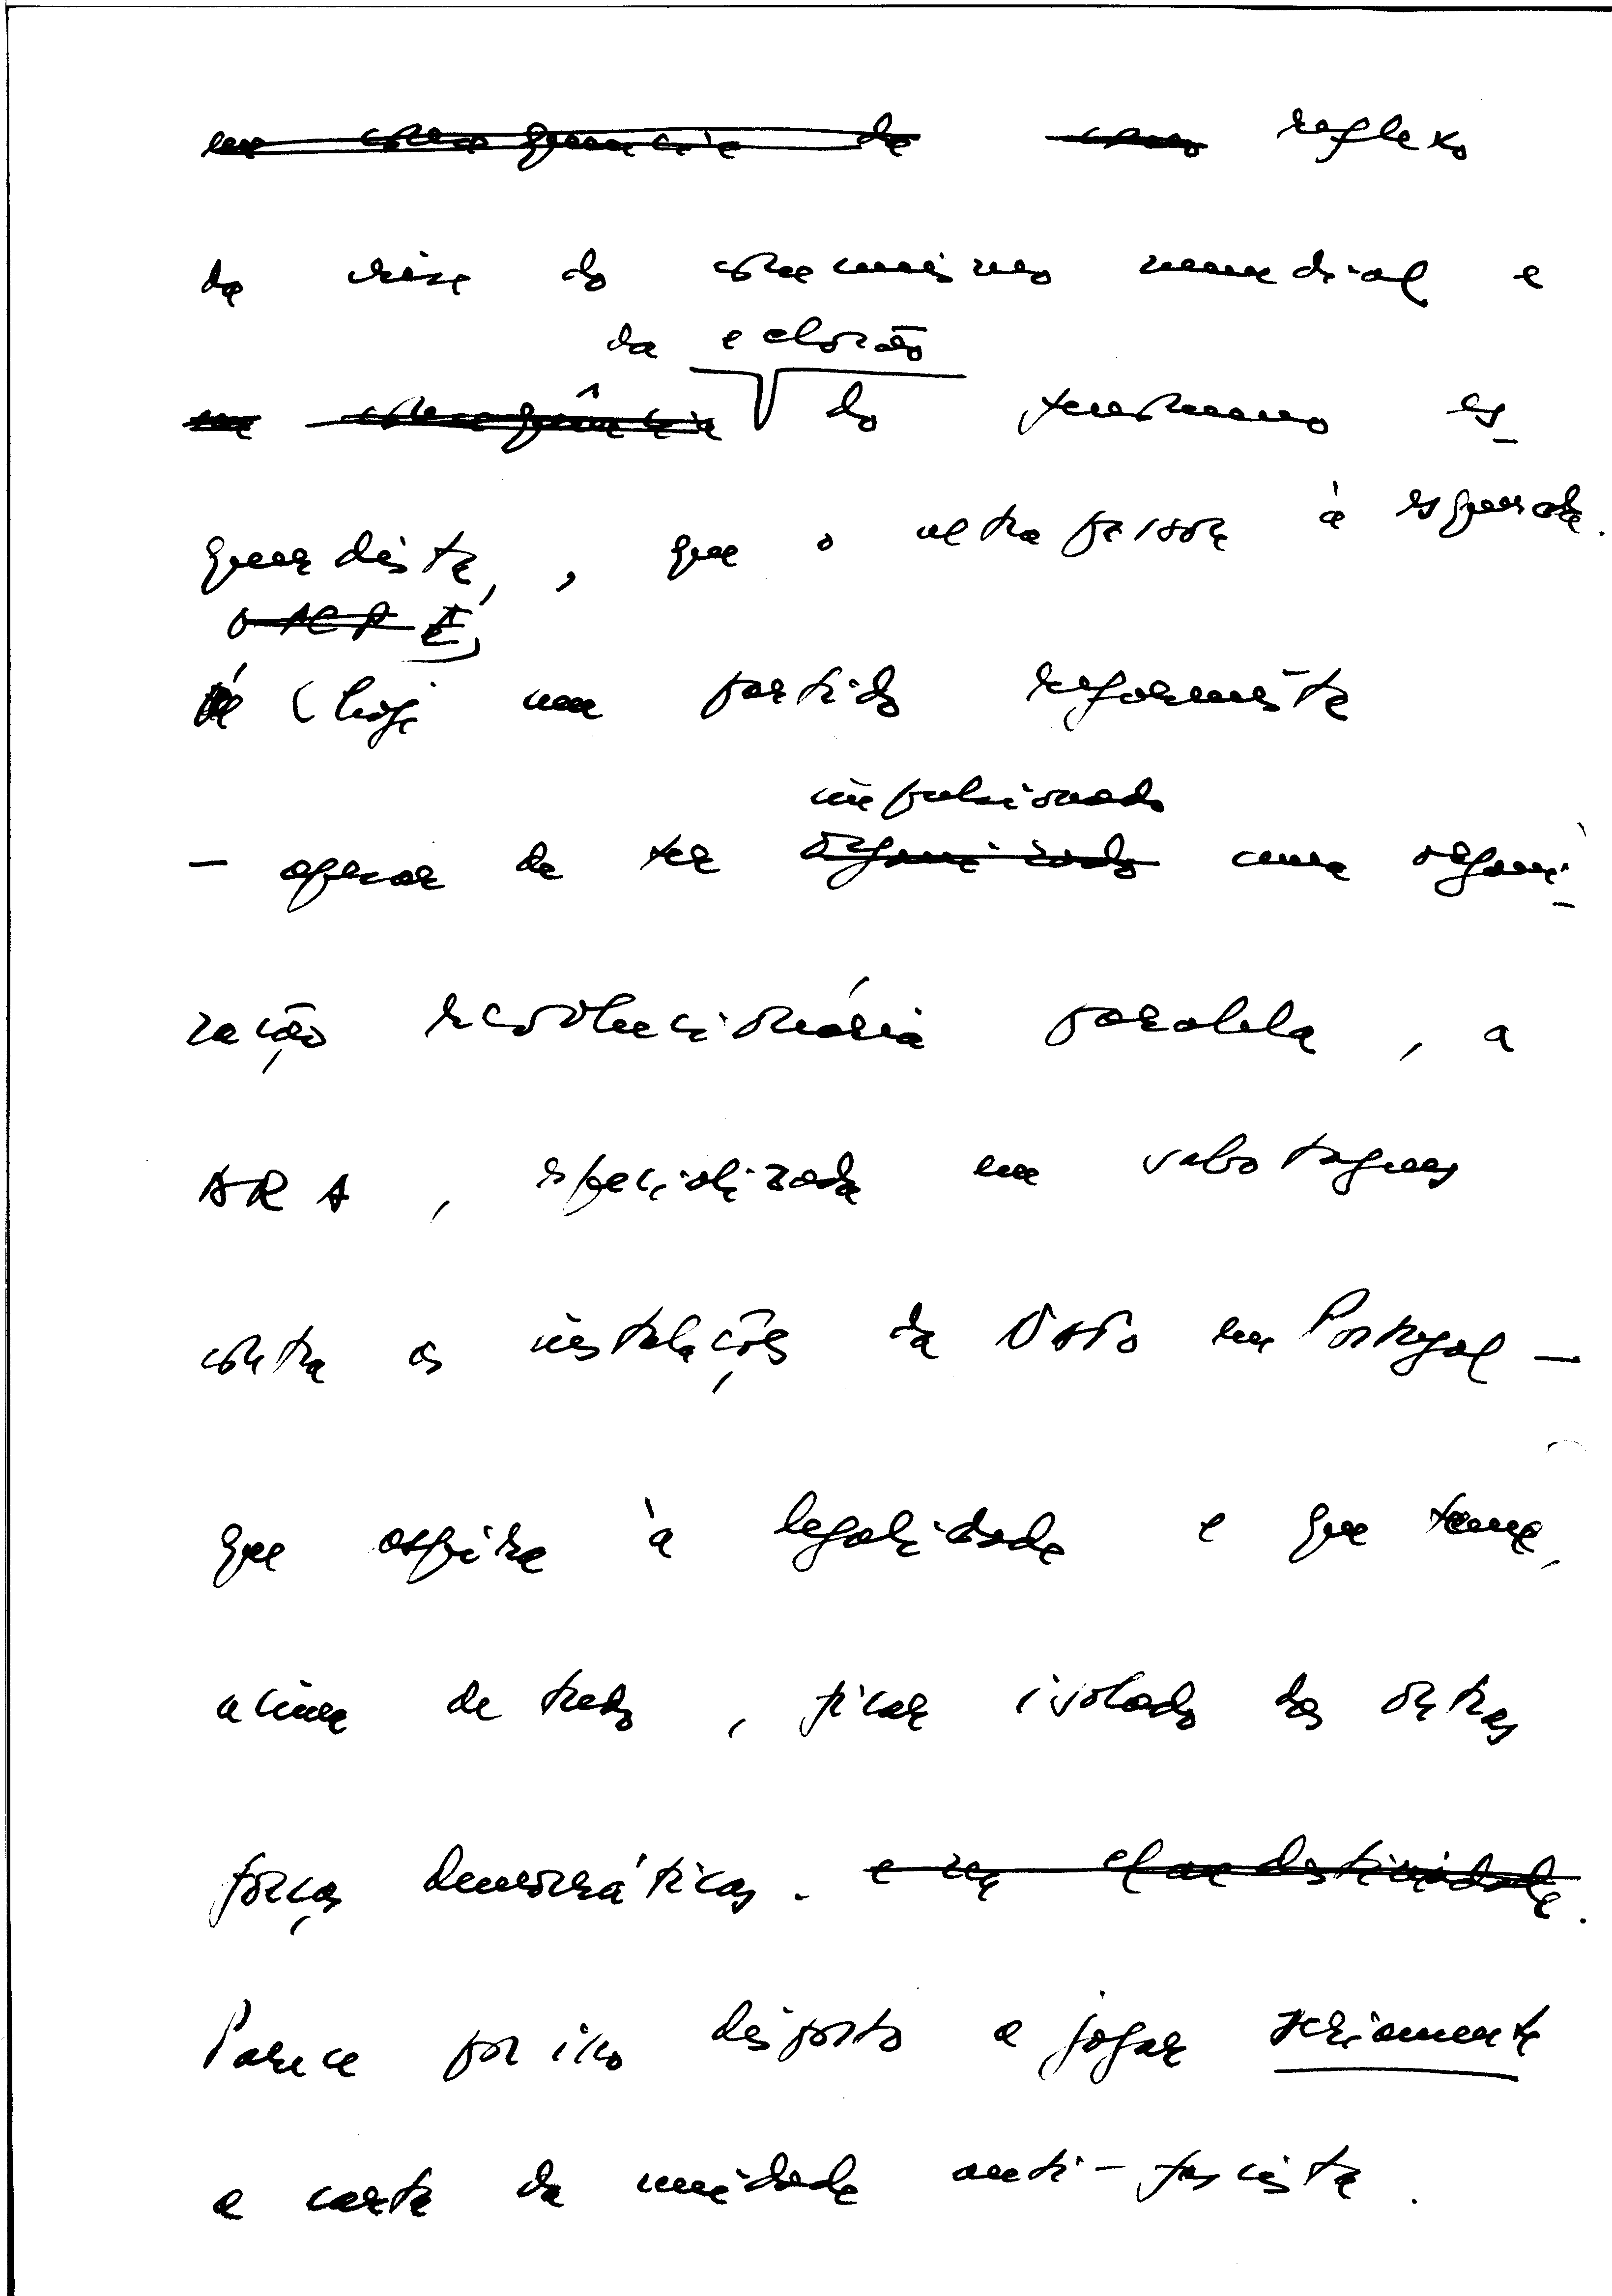 em consequencia da como reflexo
da crise do comunismo mundial e
da eclosão
na consequência do fenómeno es-
querdista, , que o ultrapassa à esquerda.
o PCP É
é hoje um partido reformista
impulsionado
— apesar de ter organizado uma organi-
zação revolucionária paralela, a
ARA, especializada em sabotagens
contra as instalações da Nato em Portugal —
que aspira à legalidade e que teme,
acima de tudo, ficar isolado das outras
forças democráticas. e na clandestinidade.
Parece por isso disposto a jogar seriamente
a carta da unidade anti-fascista.